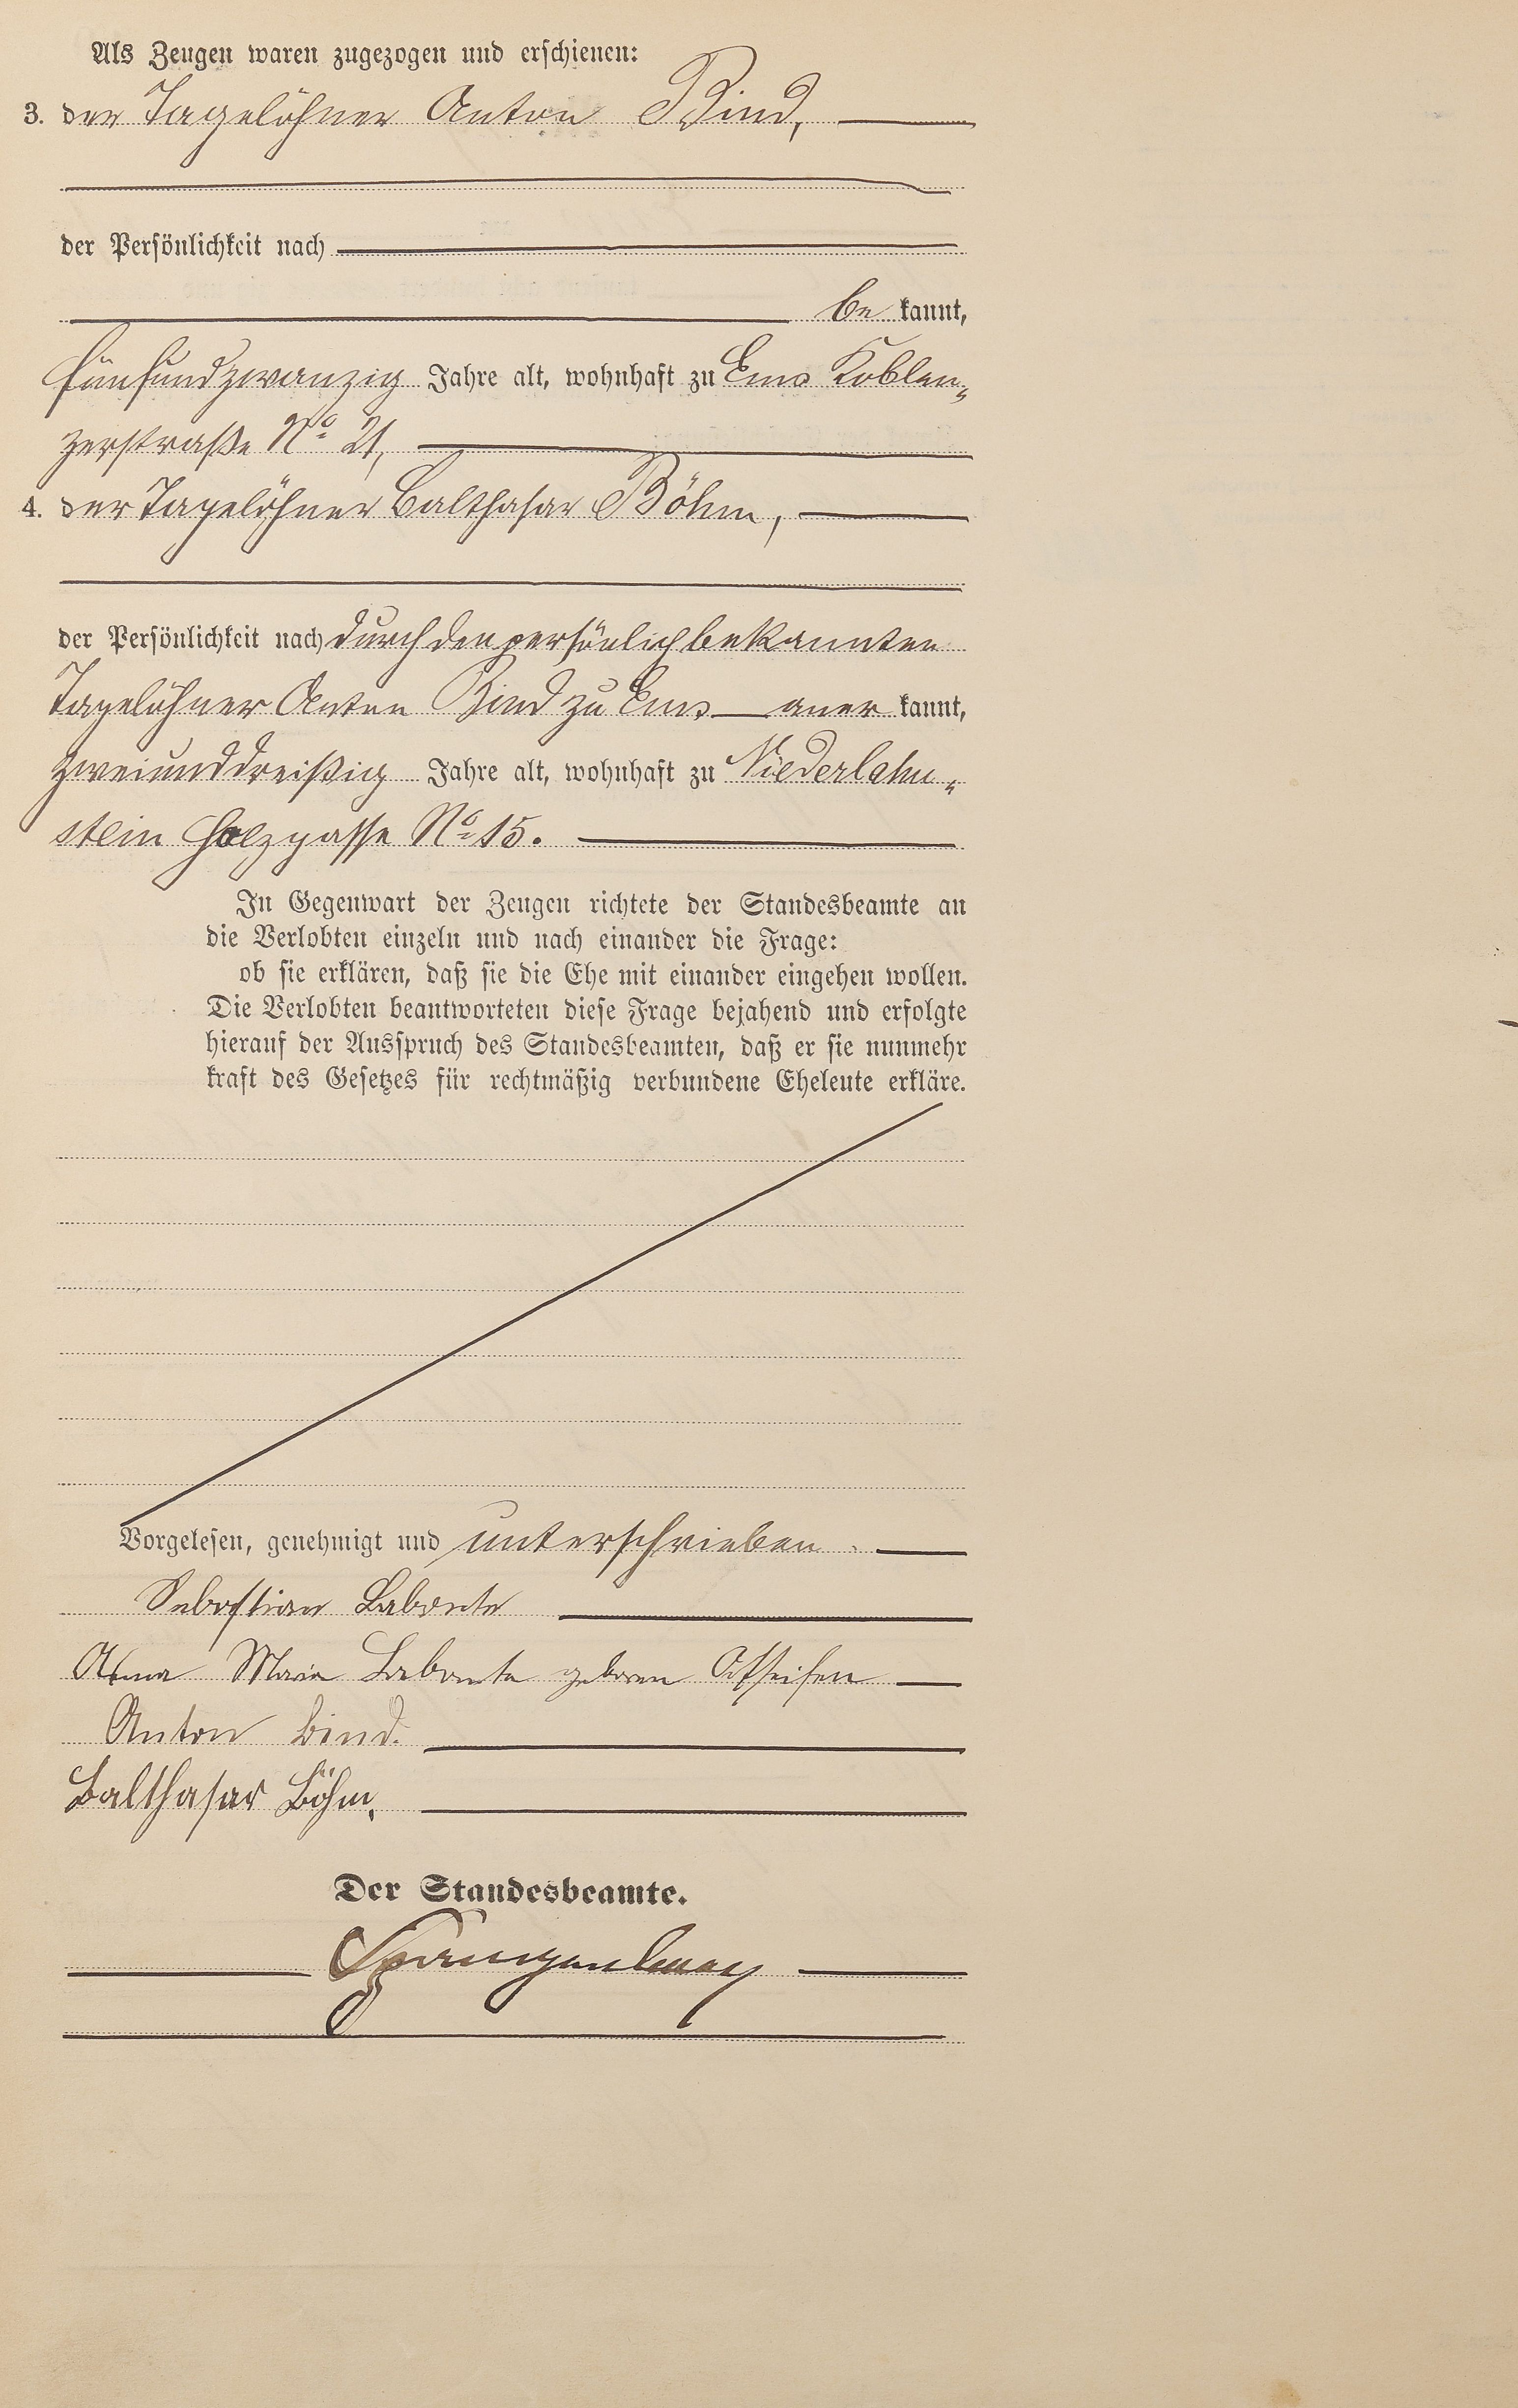 Als Zeugen waren zugezogen und erschienen:
3. der Tagelöhner Anton Bind,
der Persönlichkeit nach
be kannt,
fünfundzwanzig Jahre alt, wohnhaft zu Ems Koblen„
zerstraße No 21,
4. der Tagelöhner Balthasar Böhm,
der Persönlichkeit nach durch den persönlich bekannten
Tagelöhner Anton Bind zu Ems aner kannt,
zweiunddreißig Jahre alt, wohnhaft zu Niederlahn„
stein Holzgasse No 15.
In Gegenwart der Zeugen richtete der Standesbeamte an
die Verlobten einzeln und nach einander die Frage:
ob sie erklären, daß sie die Ehe mit einander eingehen wollen.
Die Verlobten beantworteten diese Frage bejahend und erfolgte
hierauf der Ausspruch des Standesbeamten, daß er sie nunmehr
kraft des Gesetzes für rechtmäßig verbundene Eheleute erkläre.
Vorgelesen, genehmigt und unterschrieben.
Sebastian Labonte
Anna Maria Labonte geboren
Anton Bind.
Balthasar Böhm.
Der Standesbeamte.